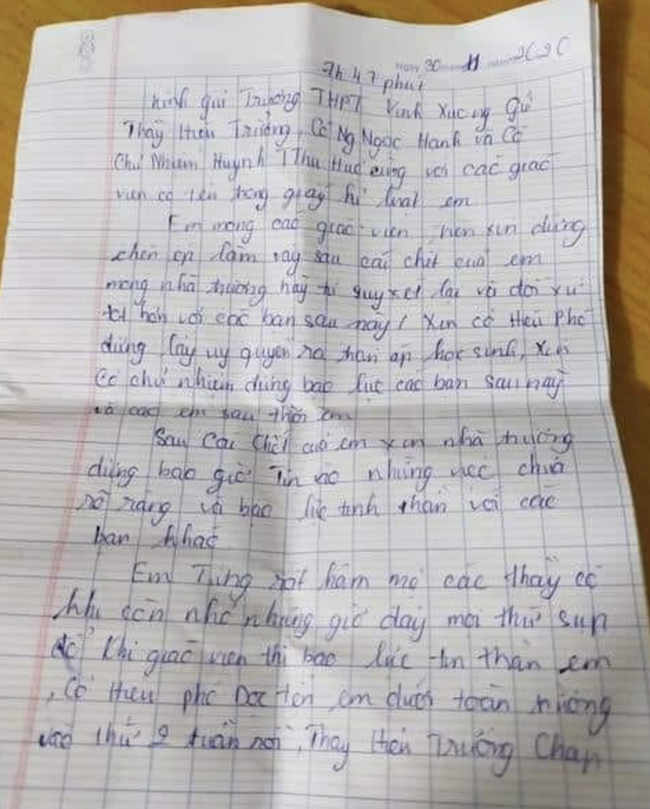 7h 47 phút Ngày 30 11 2020
Kính gửi Trường THPT Vĩnh Xương Gửi
Thầy Hiệu Trưởng, Cô Ng Ngọc Hạnh và Cô
Chủ Nhiệm Huỳnh T Thu Huệ cùng với các giáo
viên có tên trong giấy kỉ luật em
Em mong các giáo viên, xin đừng
chèn ép lắm vậy sau cái chết của em
mong nhà trường hãy suy xét lại và đối xử
tốt hơn với các bạn sau này! Xin cô Hiệu Phó
đừng lấy uy quyền ra chèn ép học sinh, xin
cô chủ nhiệm đừng bạo lực các bạn sau này
và các em sau thời em
Sau cái chết của em xin nhà trường
đừng bao giờ những việc chưa
rõ ràng và bạo lực tinh thần với các
bạn khác
Em Từng rất hâm mộ các thầy cô
khi còn nhỏ nhưng giờ đây mọi thứ sụp
đổ Khi giáo viên thì bạo lực tin thần em
, Cô Hiệu phó Đọc tên em dưới toàn trường
vào thứ 2 tuần rồi, Thầy Hiệu Trưởng